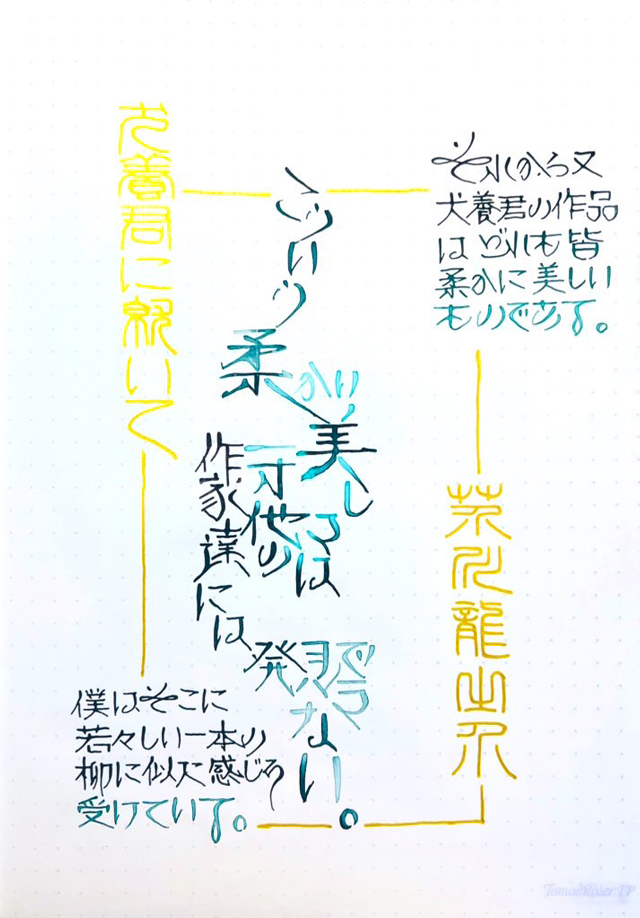 犬養君に就いて
それから又
犬養君の作品
はどれも皆
柔かに美しい
ものである。
こういう柔かい
美しさは
一寸他の
作家達には
発見できない。
僕はそこに
若々しい一本の
柳に似た感じを
受けている。
芥川龍之介
Tomoe River FP